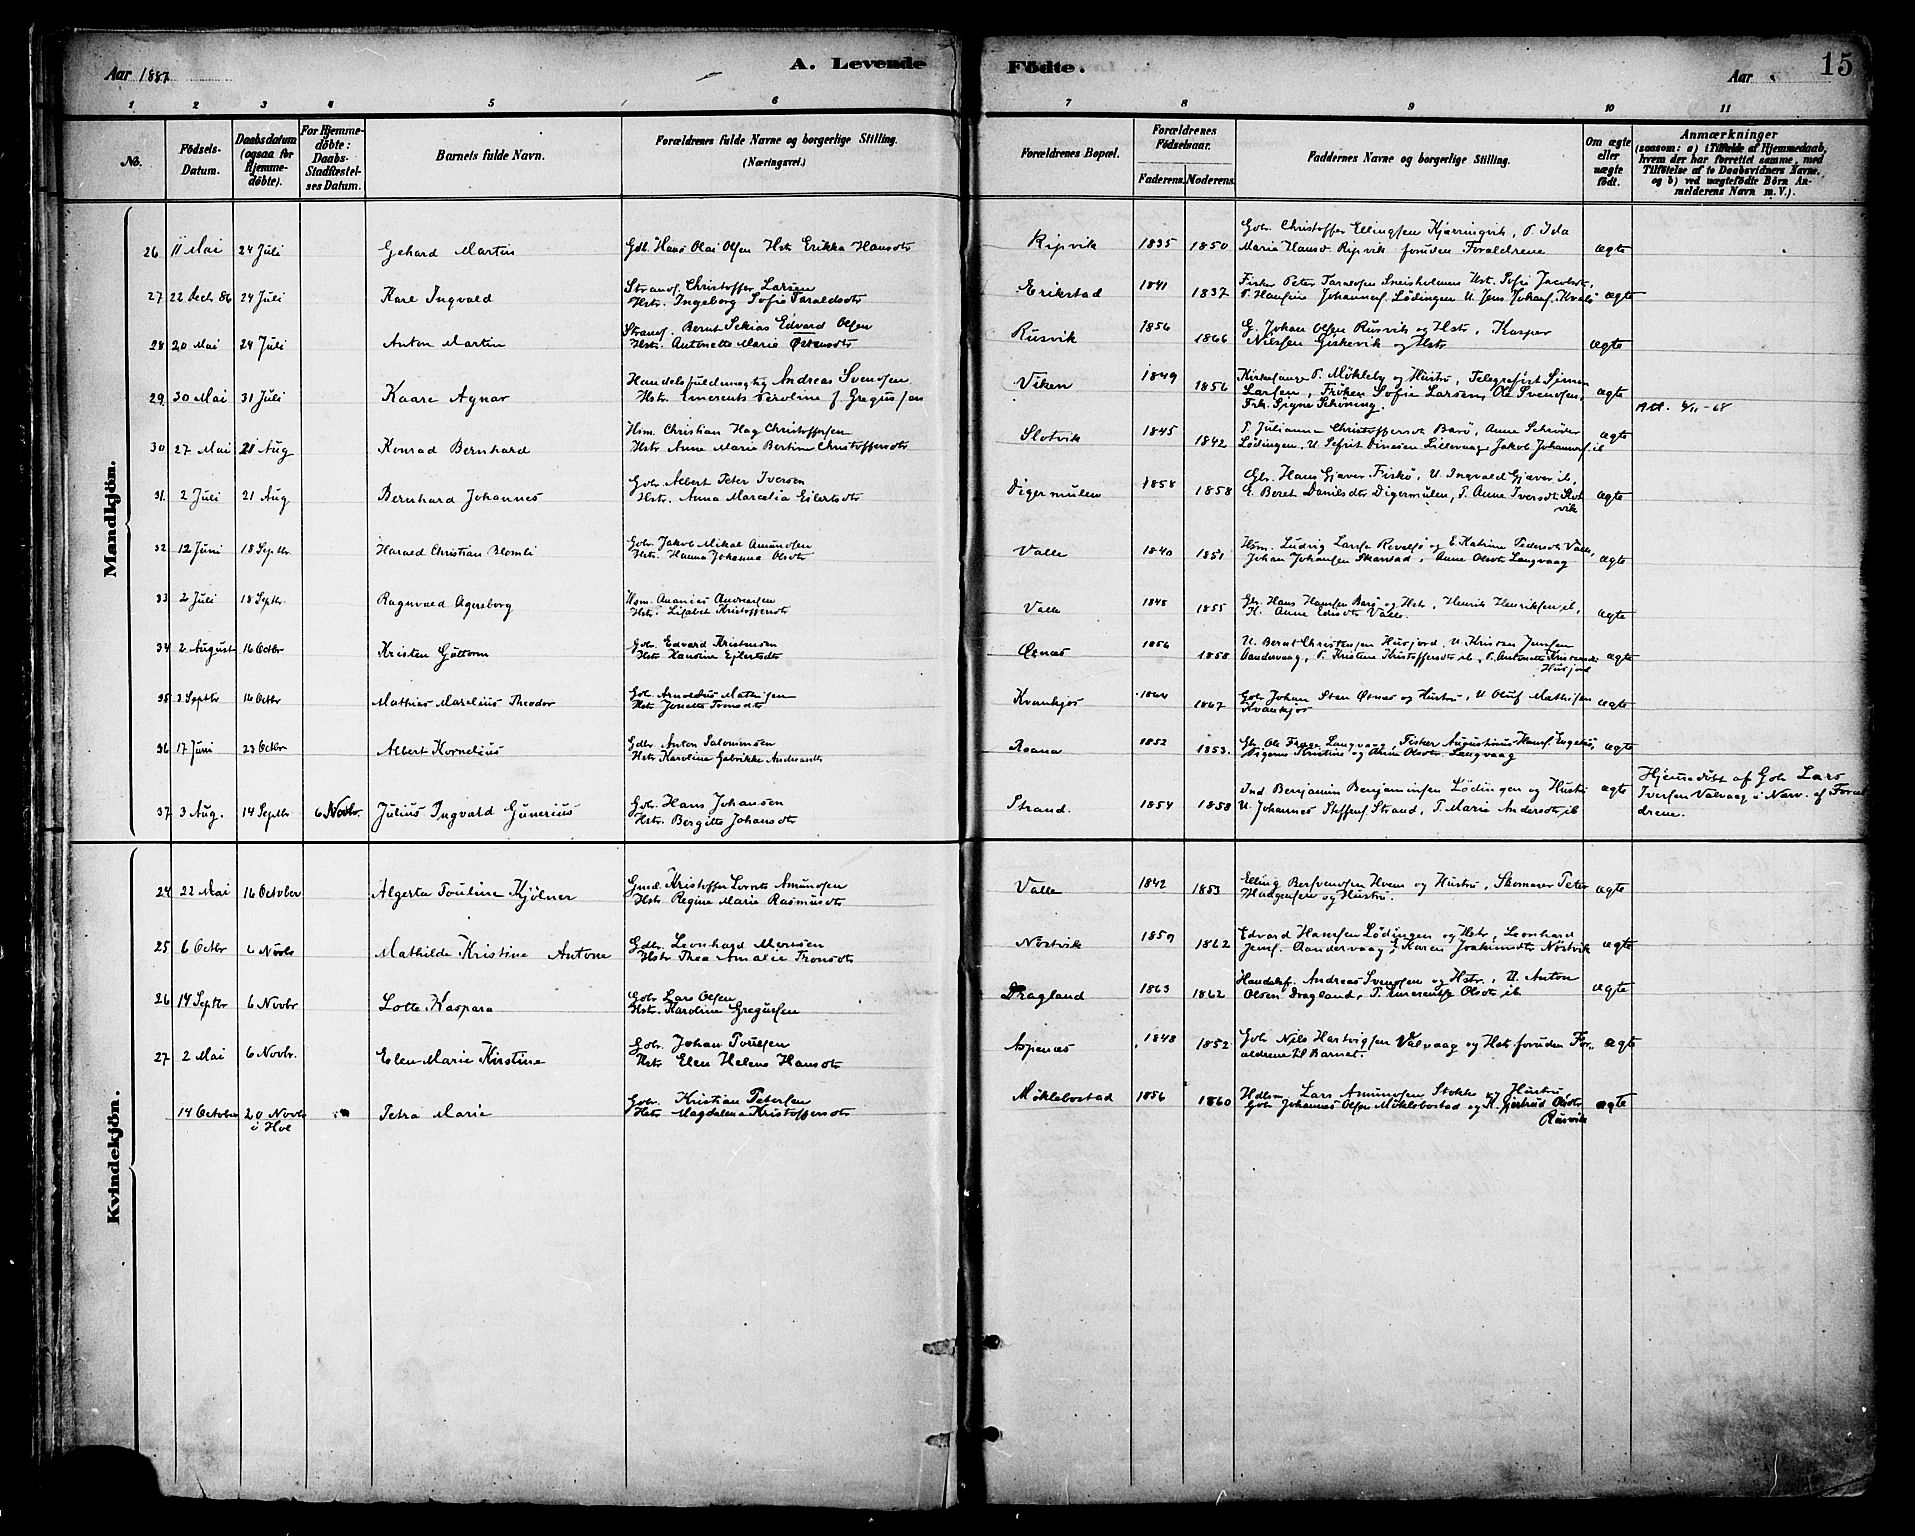 Aar 1887
A. Levende
Födte.
Aar
15
1 2 3 4 5 6 7 8 9 10 11
No.
Födsels-Datum.
Daabsdatum (ogsaa for Hjemme-döbte).
For Hjemme-döbte: Daabs-Stadfæstel-ses Datum.
Barnets fulde Navn.
Forældrenes fulde Navne og borgerlige Stilling.
(Næringsvei.)
Forældrenes Bopæl.
Forældrenes Födselsaar.
Faderens. Moderens.
Faddernes Navne og borgerlige Stilling.
Om ægte eller uægte født.
Anmærkninger
(saasom: a) i Tilfælde af Hjemmedaab,
hvem der har forrettet samme, med
Tilföielse af to Daabsvidners Navne,
og b) ved uægtefödte Börn An-
melderens Navn m. V.).
Mandkjön.
26 11 Mai 24 Juli Gehard Martin Gdb. Hans Olai Olsen Hst Erikka Hansdtr Ripvik 1835 1850 Gbr Christoffer Ellingsen Kjærringvik, P. Ida
Maria Hansd Ripvik foruden Forældrene ægte
27 22 Dech 86 24 Juli Karl Ingvald Strands. Christoffer Larsen
Hstr. Ingeborg Sofie Taraldsdtr Erikstad 1841 1837 Fisker Peter Taraldsen Sneisholmen Hst. Sofie Jacobsdtr,
P. Hansine Johannes. Lödingen U. Jens Johans. Kvalö ægte
28 20 Mai 24 Juli Anton Martin Strands. Bernt Sekias Edvard Olsen
Hstr. Antonette Marie Østensdtr Rusvik 1856 1866 G. Johan Olsen Rusvik og Hstr, Kasper
Nilssen Giskevik og Hstr ægte
29. 30 Mai 31 Juli Kaare Agnar Handelsfuldmægtig Andreas Svendsen
Hstr. Emerents Peroline f. Gregussen Viken 1849 1856 Kirkesanger P. Møkleby og Hustru, Telegrafist Simen
Larsen, Frøken Sofie Larsen, Ole Svendsen,
Frk. Signe Schöning. ægte Att. 4/11-68
30 27 Mai 21 Aug Konrad Bernhard Hsm. Christian Hag Christoffersen
Hstr Anne Marie Bertine Christoffersdtr Slotvik 1845 1842 P. Julianna Christoffersdt Barø, Anne Schröder
Lödingen, U. Sefrit Dinesen Lillevaag, Jakob Johannes. ib ægte
31. 2 Juli 21 Aug Bernhard Johannes Gbr Albert Peter Iversen
Hstr. Anna Marcelia Eilertsdtr Digermulen 1858 1858 Gbr. Hans Gjæver Fiskø, U. Ingvald Gjæver ib,
E. Beret Danilsdtr Digermulen, P. Anne Iversdt Slot
vik ægte
32 12 Juni 18 Septbr Harald Christian Blomli Gbr. Jakob Mikal Amundsen
Hstr. Hanna Johanna Olsdtr Valle 1840 1851 Hsm. Ludvig Larse Revelsø og E. Katrine Pedersdtr Valle,
Johan Johansen Skarstad, Anne Olsdtr Langvaag ægte
33 2 Juli 18 Septbr. Ragnvald Agersborg Hsm. Ananias Andreassen
Hstr. Lisabet Kristoffersdtr Valle 1848 1855 Gbr. Hans Hansen Barø og Hst, Henrik Henriksen ib,
H. Anne Ensdtr Valle. ægte
34 2 August 16 Octbr Kristen Guttorm Gbr Edvard Kristensen
Hstr Hansine Ejlertsdtr Øsnæs 1856 1858 U. Bernt Christensen Husjord, U. Kristen Jensen
Vandervaag, P. Kristine Kristoffersdtr ib, P. Antonette Kristensdtr
Husjord ægte
35 3 Septbr 16 Octbr Mathias Marelius Theodor Gbr Arnoldus Mathisen
Hstr Jenette Tomsdtr Kvankjos 1864 1867 Gbr Johan Sten Øsnæs og Hustru, U Oluf Mathisen
Kvankjos ægte
36 17 Juni 23 Octbr Albert Kornelius Gdbr Anton Salomonsen
Hstr Karoline Gabrikke Andreasdtr Raana 1852 1853. Gbr Ole Langvaag, Fisker Augustinus Hans.
Kristine og Anna Olsdtr Langvaag ægte
37 3 Aug. 14 Septbr 6 Novbr. Julius Ingvald Gunerius Gbr. Hans Johansen
Hstr. Bergitte Johansdtr Strand. 1854 1858 Ind Benjamin Benjaminsen Lödingen og Hustru
U. Johannes Steffens. Strand, P. Marie Andersdtr ib ægte Hjemmedøbt af Gbr Lars
Iversen Valvaag i Nærv. af Foræl
drene.
Kvindekjön.
24 22 Mai 16 October Algerta Pouline Kjölner Gmd. Kristoffer Lornts Amundsen
Hstr Regine Marie Rasmusdtr Valle 1842 1853 Elling Bersvendsen Hvem og Hustru, Skomager Peter
Haagensen og Hustru. ægte
25 6 Octbr 6 Novbr Mathilde Kristine Antone Gdbr. Leonhard Monsen
Hstr. Thea Amalie Tronsdtr Nöstvik 1857 1862 Edvard Hansen Lödingen og Hstr, Leonhard
Jens. Vandervaag, E. Karen Joakimsdtr Nöstvik ægte
26 14 Septbr 6 Novbr Lotte Kaspara Gbr Lars Olsen
Hstr. Karoline Gregussen Dragland 1863 1862 Handelsf. Andreas Svendsen og Hstr., U. Anton
Olsen Dragland, P. Emerentse Olsdtr ib ægte
27 2 Mai 6 Novbr. Elen Marie Kirstine Gbr. Johan Poulsen
Hstr Elen Helene Hansdtr Aspenæs 1848 1852 Gbr Nils Hartvigsen Valvaag og Hstr foruden For-
ældrene til Barnet. ægte
14 October 20 Novbr
i Hol Petra Marie Gbr. Kristian Petersen
Hstr Magdalena Kristoffersdtr Møklebostad 1856 1860 Hdlsm. Lars Amundsen Stokke og Hustru
Gbr Johannes Olsen Møklebostad og H. Gjertrud Olsdtr
Rusvik ægte